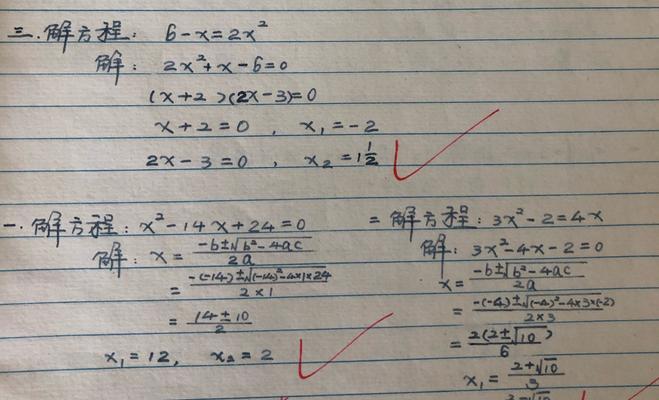 三.解方程: 6-x=2x²
解: 2x²+x-6=0
(x+2)(2x-3)=0
x+2=0, x₁=-2
2x-3=0, x₂=1½
一.解方程: x²-14x+24=0
解: x=(-b±√(b²-4ac))/2a
=(-(-14)±√((-14)²-4×1×24))/(2×1)
=(14±10)/2
x₁=12, x₂=2
二解方程: 3x²-2=4x
解: 3x²-4x-2=0
x=(-b±√(b²-4ac))/2a
=(-(-4)±√((-4)²-4×3×(-2)))/(2×3)
=2(2±√10)/6
x₁=(2+√10)/3